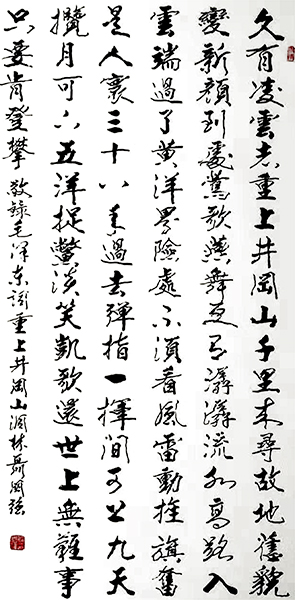 久有凌雲志重上井岡山千里来尋故地舊貌
變新顏到處鶯歌燕舞更有潺潺流水高路入
雲端過了黃洋界險處不須看風雷動旌旗奮
是人寰三十八年過去彈指一揮間可上九天
攬月可下五洋捉鱉談笑凱歌還世上無難事
只要肯登攀敬錄毛澤东詞重上井岡山